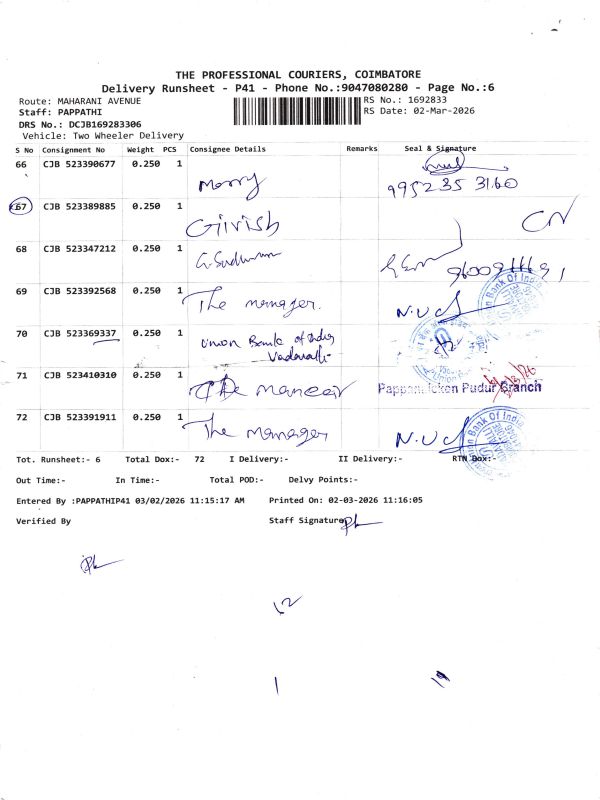 THE PROFESSIONAL COURIERS, COIMBATORE
Delivery Runsheet - P41 - Phone No.:9047080280 - Page No.:6
Route: MAHARANI AVENUE
RS No.: 1692833
Staff: PAPPATHI
RS Date: 02-Mar-2026
DRS No.: DCJB169283306
Vehicle: Two Wheeler Delivery
S No Consignment No Weight PCS Consignee Details Remarks Seal & Signature
66 CJB 523390677 0.250 1 99523 5 3160
67 CJB 523389885 0.250 1 Girish CN
68 CJB 523347212 0.250 1
69 CJB 523392568 0.250 1 The manager.
70 CJB 523369337 0.250 1 Union Bank of India
71 CJB 523410310 0.250 1
Pudur Branch
72 CJB 523391911 0.250 1 The manager
Tot. Runsheet:- 6 Total Dox:- 72 I Delivery:- II Delivery:- RTN Dox:-
Out Time:- In Time:- Total POD:- Delvy Points:-
Entered By :PAPPATHIP41 03/02/2026 11:15:17 AM Printed On: 02-03-2026 11:16:05
Verified By Staff Signature